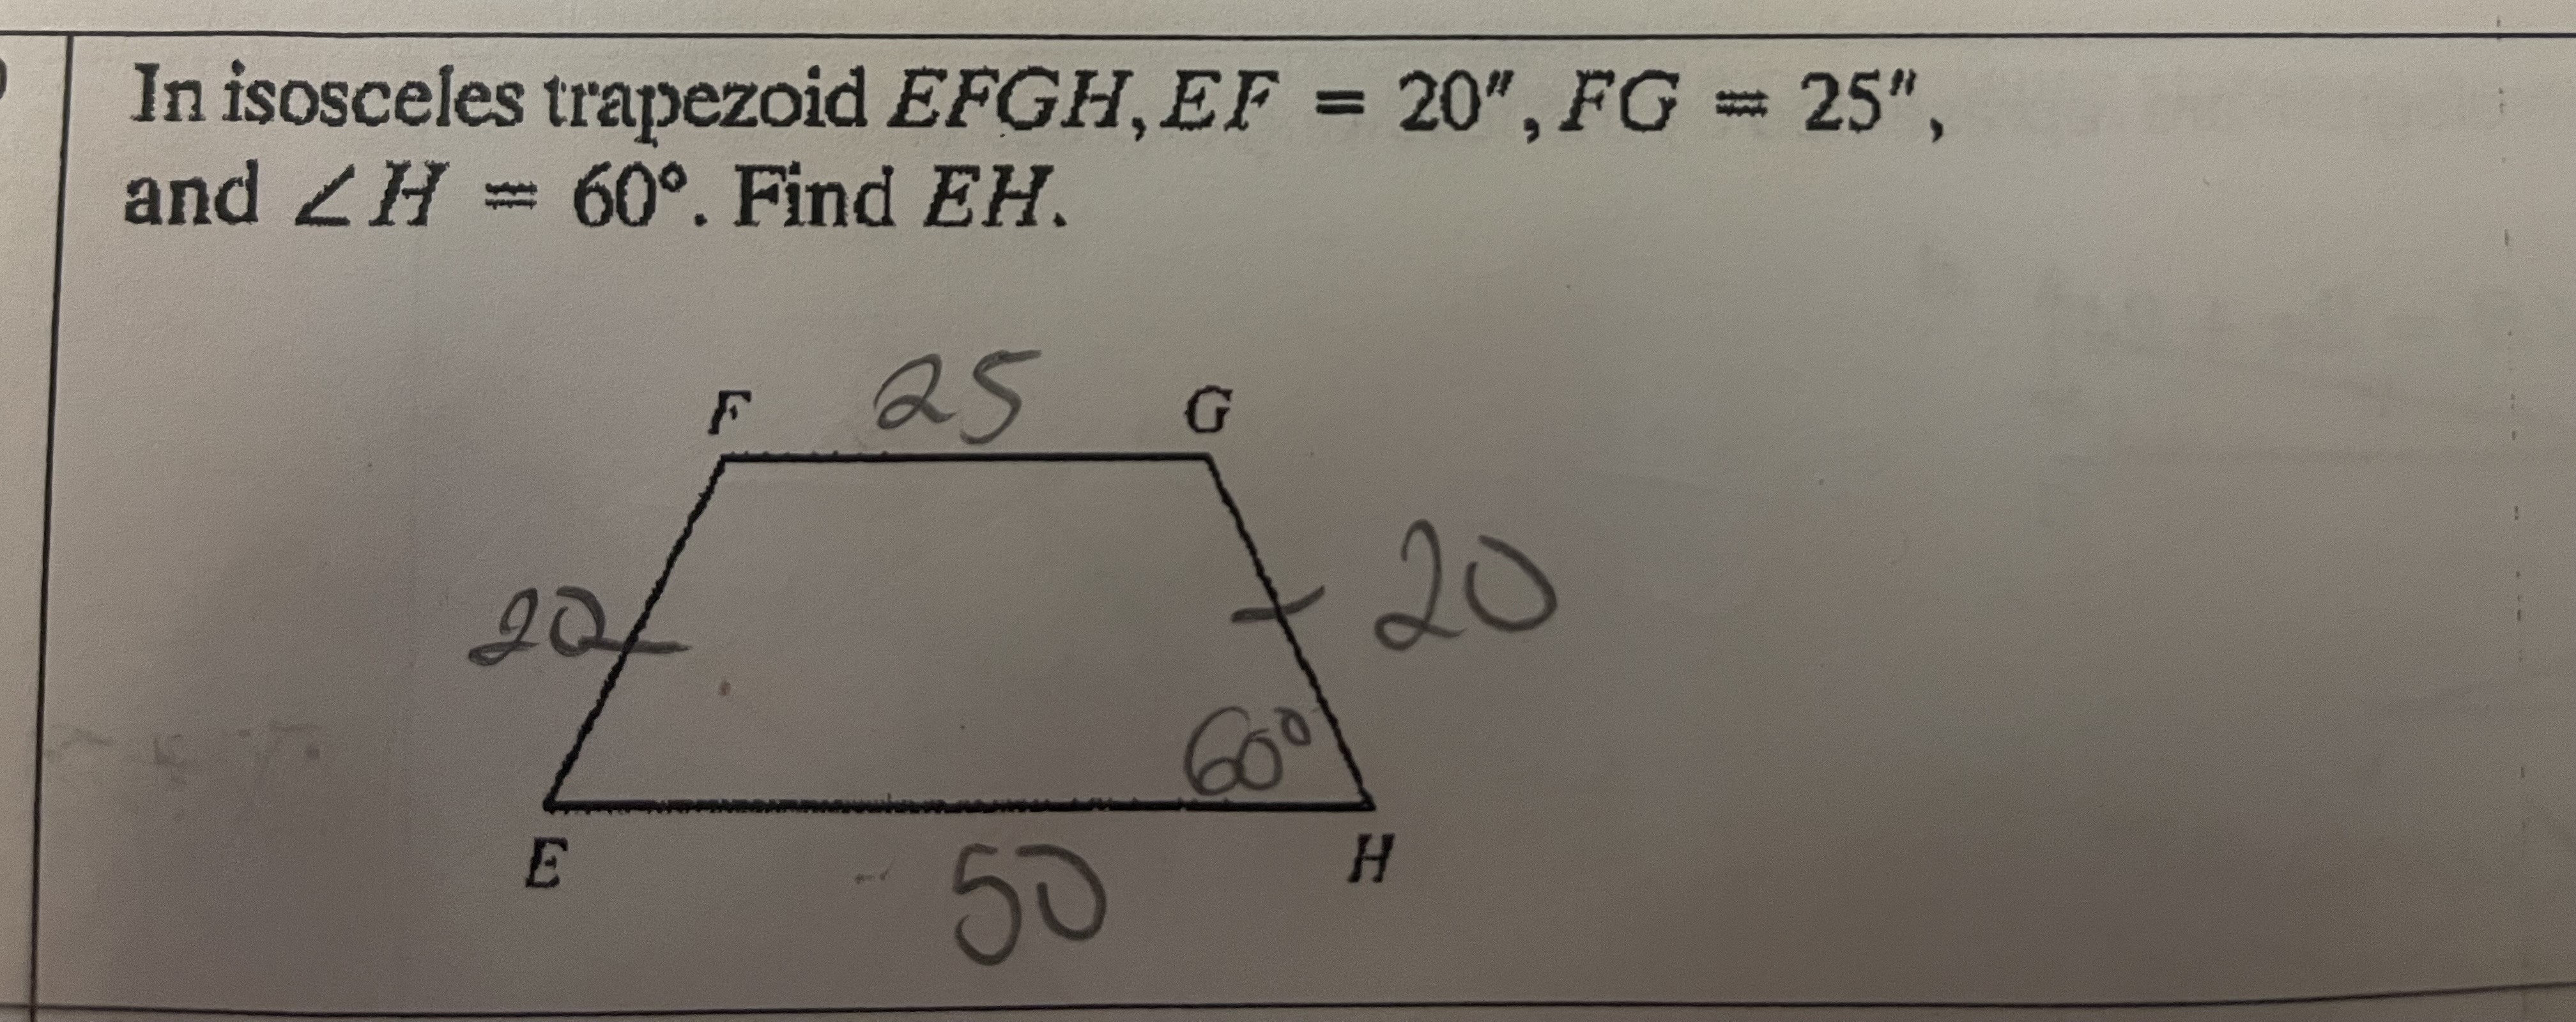 In isosceles trapezoid EFGH, EF = 20", FG = 25",
and ∠H = 60°. Find EH.
F 25 G
20 20
60°
E 50 H